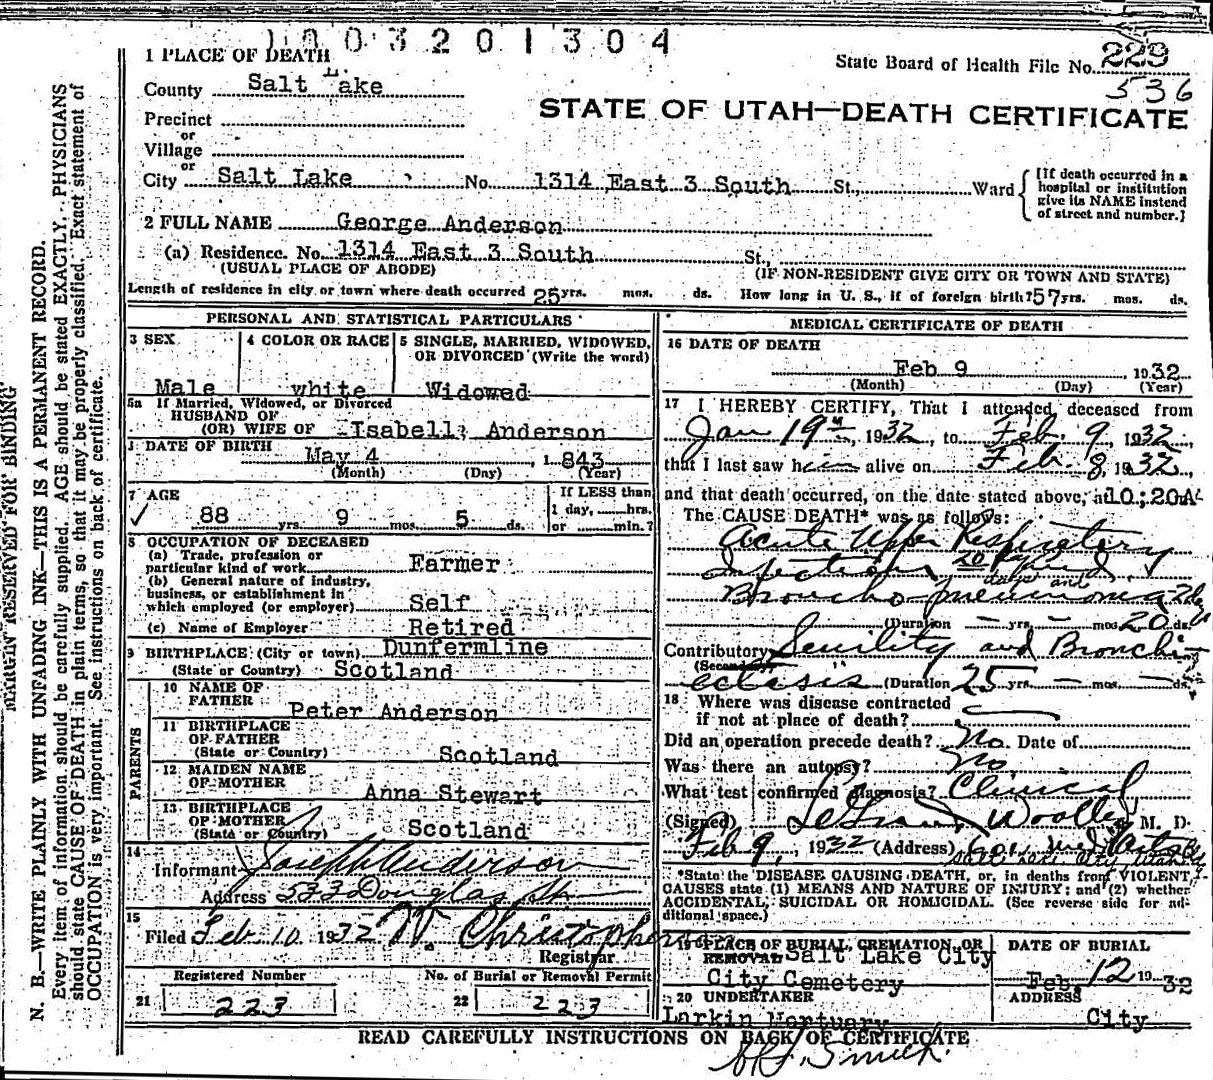 1003201304
1 PLACE OF DEATH
State Board of Health File No. 229
536
County Salt Lake
STATE OF UTAH—DEATH CERTIFICATE
Precinct
or
Village
or
City Salt Lake No. 1314 East 3 South St., Ward
[If death occurred in a hospital or institution give its NAME instead of street and number.]
2 FULL NAME George Anderson
(a) Residence. No. 1314 East 3 South St.,
(USUAL PLACE OF ABODE) (IF NON-RESIDENT GIVE CITY OR TOWN AND STATE)
Length of residence in city or town where death occurred 25 yrs. mos. ds. How long in U. S., if of foreign birth? 57 yrs. mos. ds.
PERSONAL AND STATISTICAL PARTICULARS
3 SEX 4 COLOR OR RACE 5 SINGLE, MARRIED, WIDOWED, OR DIVORCED (Write the word)
Male white Widowed
5a If Married, Widowed, or Divorced
HUSBAND OF
(OR) WIFE OF Isabell Anderson
DATE OF BIRTH
May 4 1843
(Month) (Day) (Year)
7 AGE
88 yrs. 9 mos. 5 ds.
If LESS than
1 day, hrs.
or min.?
8 OCCUPATION OF DECEASED
(a) Trade, profession or
particular kind of work Farmer
(b) General nature of industry,
business, or establishment in
which employed (or employer) Self
(c) Name of Employer Retired
9 BIRTHPLACE (City or town) Dunfermline
(State or Country) Scotland
PARENTS
10 NAME OF
FATHER Peter Anderson
11 BIRTHPLACE
OF FATHER
(State or Country) Scotland
12 MAIDEN NAME
OF MOTHER Anna Stewart
13 BIRTHPLACE
OF MOTHER
(State or Country) Scotland
14
Informant Joseph Anderson
Address 533 Douglas St
15
Filed Feb 10 1932 Christopherson
Registrar
Registered Number No. of Burial or Removal Permit
21 223 22 223
MEDICAL CERTIFICATE OF DEATH
16 DATE OF DEATH
Feb 9, 1932
(Month) (Day) (Year)
17 I HEREBY CERTIFY, That I attended deceased from
Jan 19th, 1932, to Feb. 9, 1932,
that I last saw him alive on Feb. 8, 1932,
and that death occurred, on the date stated above, at 10:20A
The CAUSE DEATH* was as follows:
Acute Upper Respiratory
Infection 20
days and
Broncho-pneumonia
(Duration — yrs. — mos 20 ds.
Contributory Senility and Bronchi-
ectasis (Duration 25 yrs. — mos. — ds.
18 Where was disease contracted
if not at place of death?
Did an operation precede death? No. Date of
Was there an autopsy? No
What test confirmed diagnosis? Clinical
(Signed) LeGrand Woolley M. D.
Feb 9, 1932 (Address)
Salt Lake City, Utah
*State the DISEASE CAUSING DEATH, or, in deaths from VIOLENT CAUSES state (1) MEANS AND NATURE OF INJURY; and (2) whether ACCIDENTAL, SUICIDAL OR HOMICIDAL. (See reverse side for additional space.)
19 PLACE OF BURIAL, CREMATION, OR
REMOVAL Salt Lake City
City Cemetery
DATE OF BURIAL
Feb. 12 1932
20 UNDERTAKER
Larkin Mortuary
ADDRESS
City
READ CAREFULLY INSTRUCTIONS ON BACK OF CERTIFICATE
MARGIN RESERVED FOR BINDING
N. B.—WRITE PLAINLY WITH UNFADING INK—THIS IS A PERMANENT RECORD.
Every item of information should be carefully supplied. AGE should be stated EXACTLY. PHYSICIANS
should state CAUSE OF DEATH in plain terms, so that it may be properly classified. Exact statement of
OCCUPATION is very important. See instructions on back of certificate.